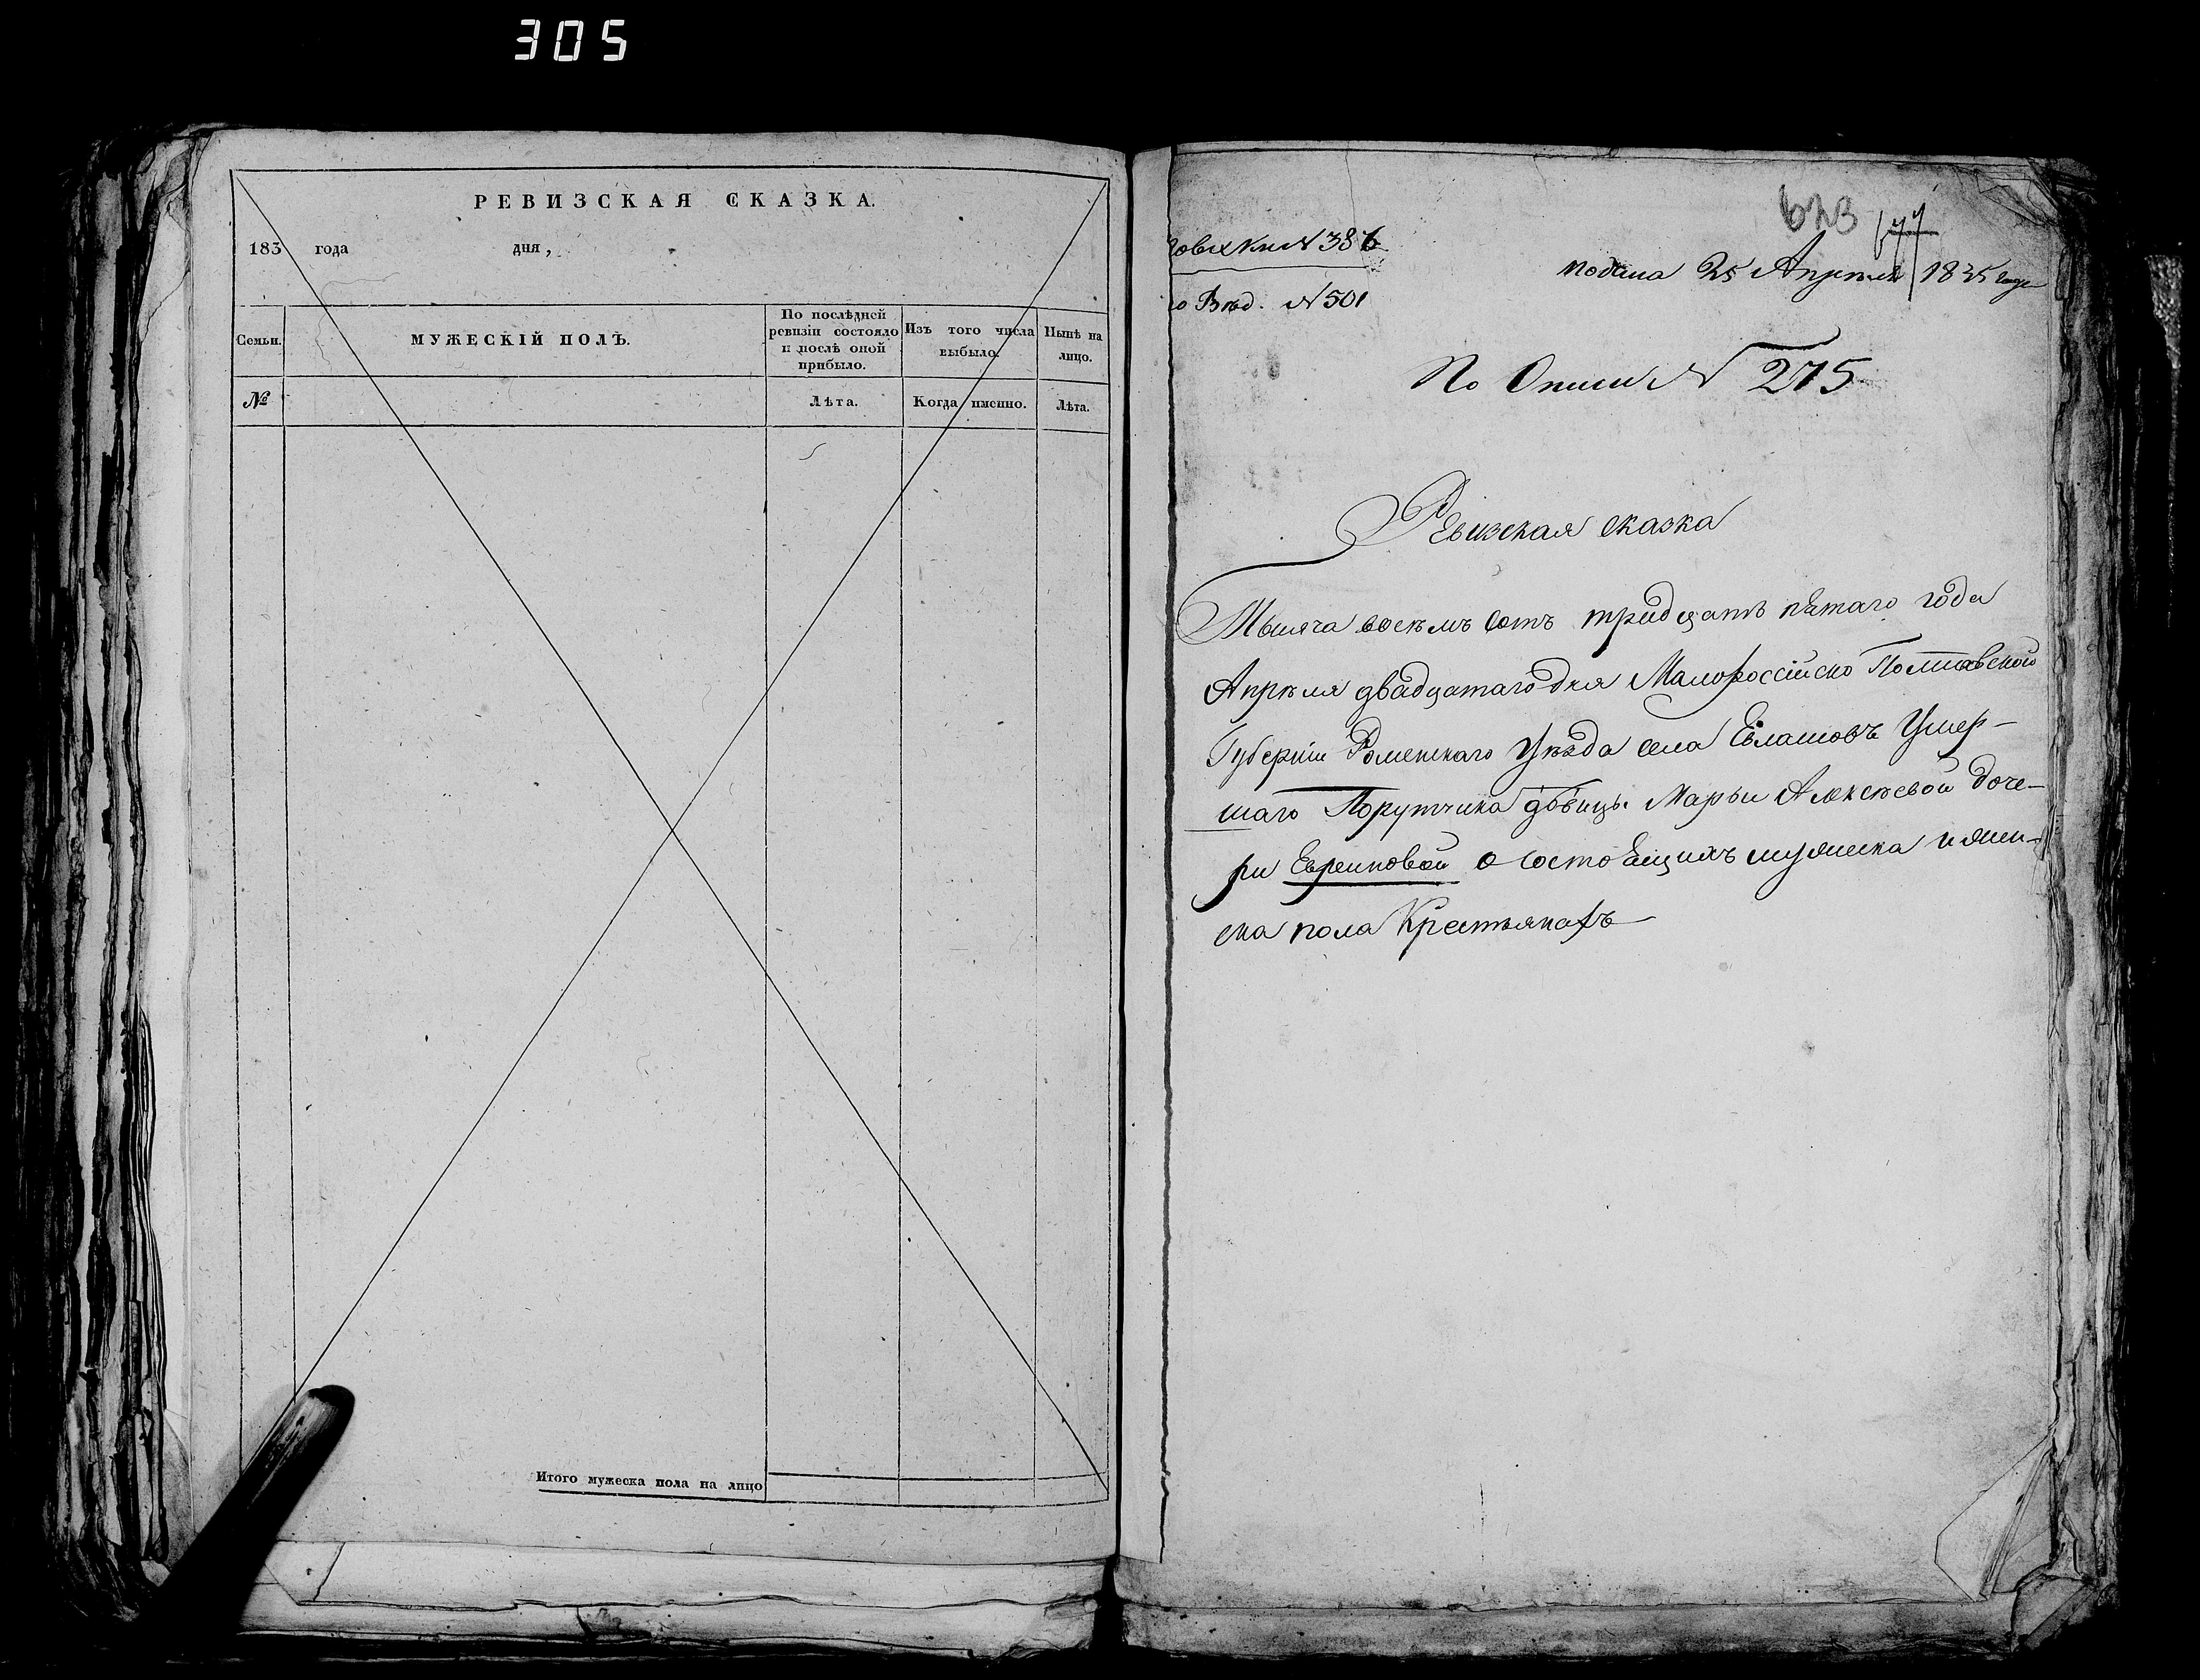 305
РЕВИЗСКАЯ СКАЗКА.
183 года дня,
Семьи.
МУЖЕСКІЙ ПОЛЪ.
По послѣдней ревизіи состояло и послѣ оной прибыло.
Изъ того числа выбыло.
Нынѣ на лицо.
№
Лѣта.
Когда именно.
Лѣта.
Итого мужеска пола на лицо
623
говых Кн № 386
о Вѣд. № 501
подана 25 Апреля 1835 года
По Описи № 275
Ревизская сказка
Тысяча восемъ сотъ тридцать пятаго года
Апрѣля двадцатаго дня Малороссійско Полтавской
Губерніи Роменскаго Уѣзда села Евлашовъ Умер-
шаго Порутчика дѣвицы Марьи Алексѣевой доче-
ри Евреиновой о состоящихъ мужеска и жен-
ска пола Крестьянахъ